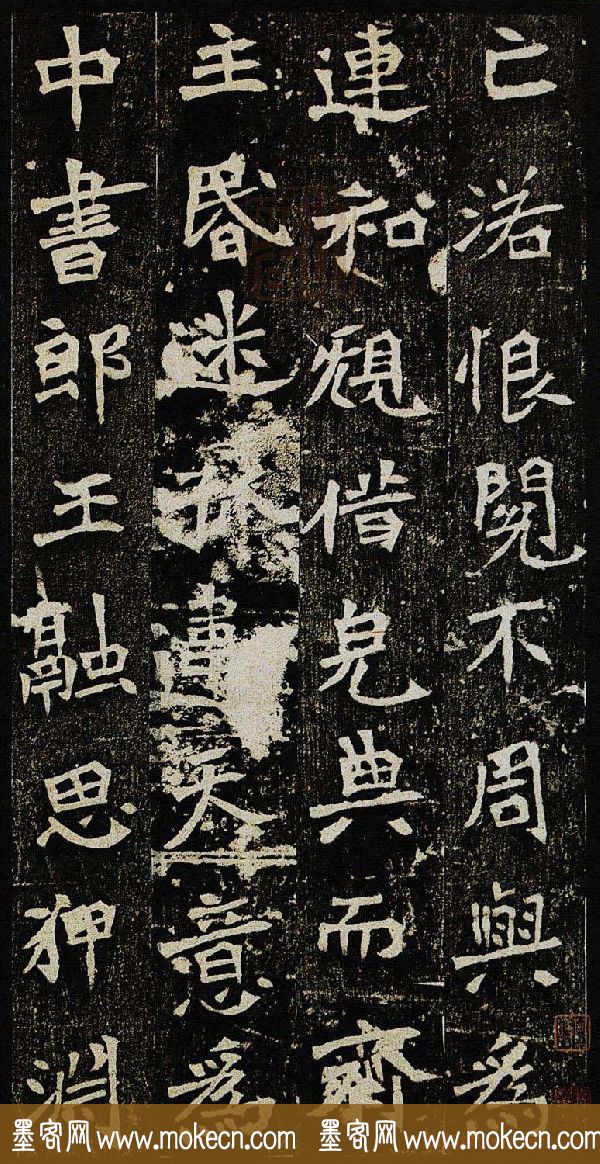 亡洛恨閱不周與為
連和規借完典而齊
主昬迷孤違天意為
中書郎王融思狎淵
墨客网 www.mokecn.com 墨客网 www.mokecn.com